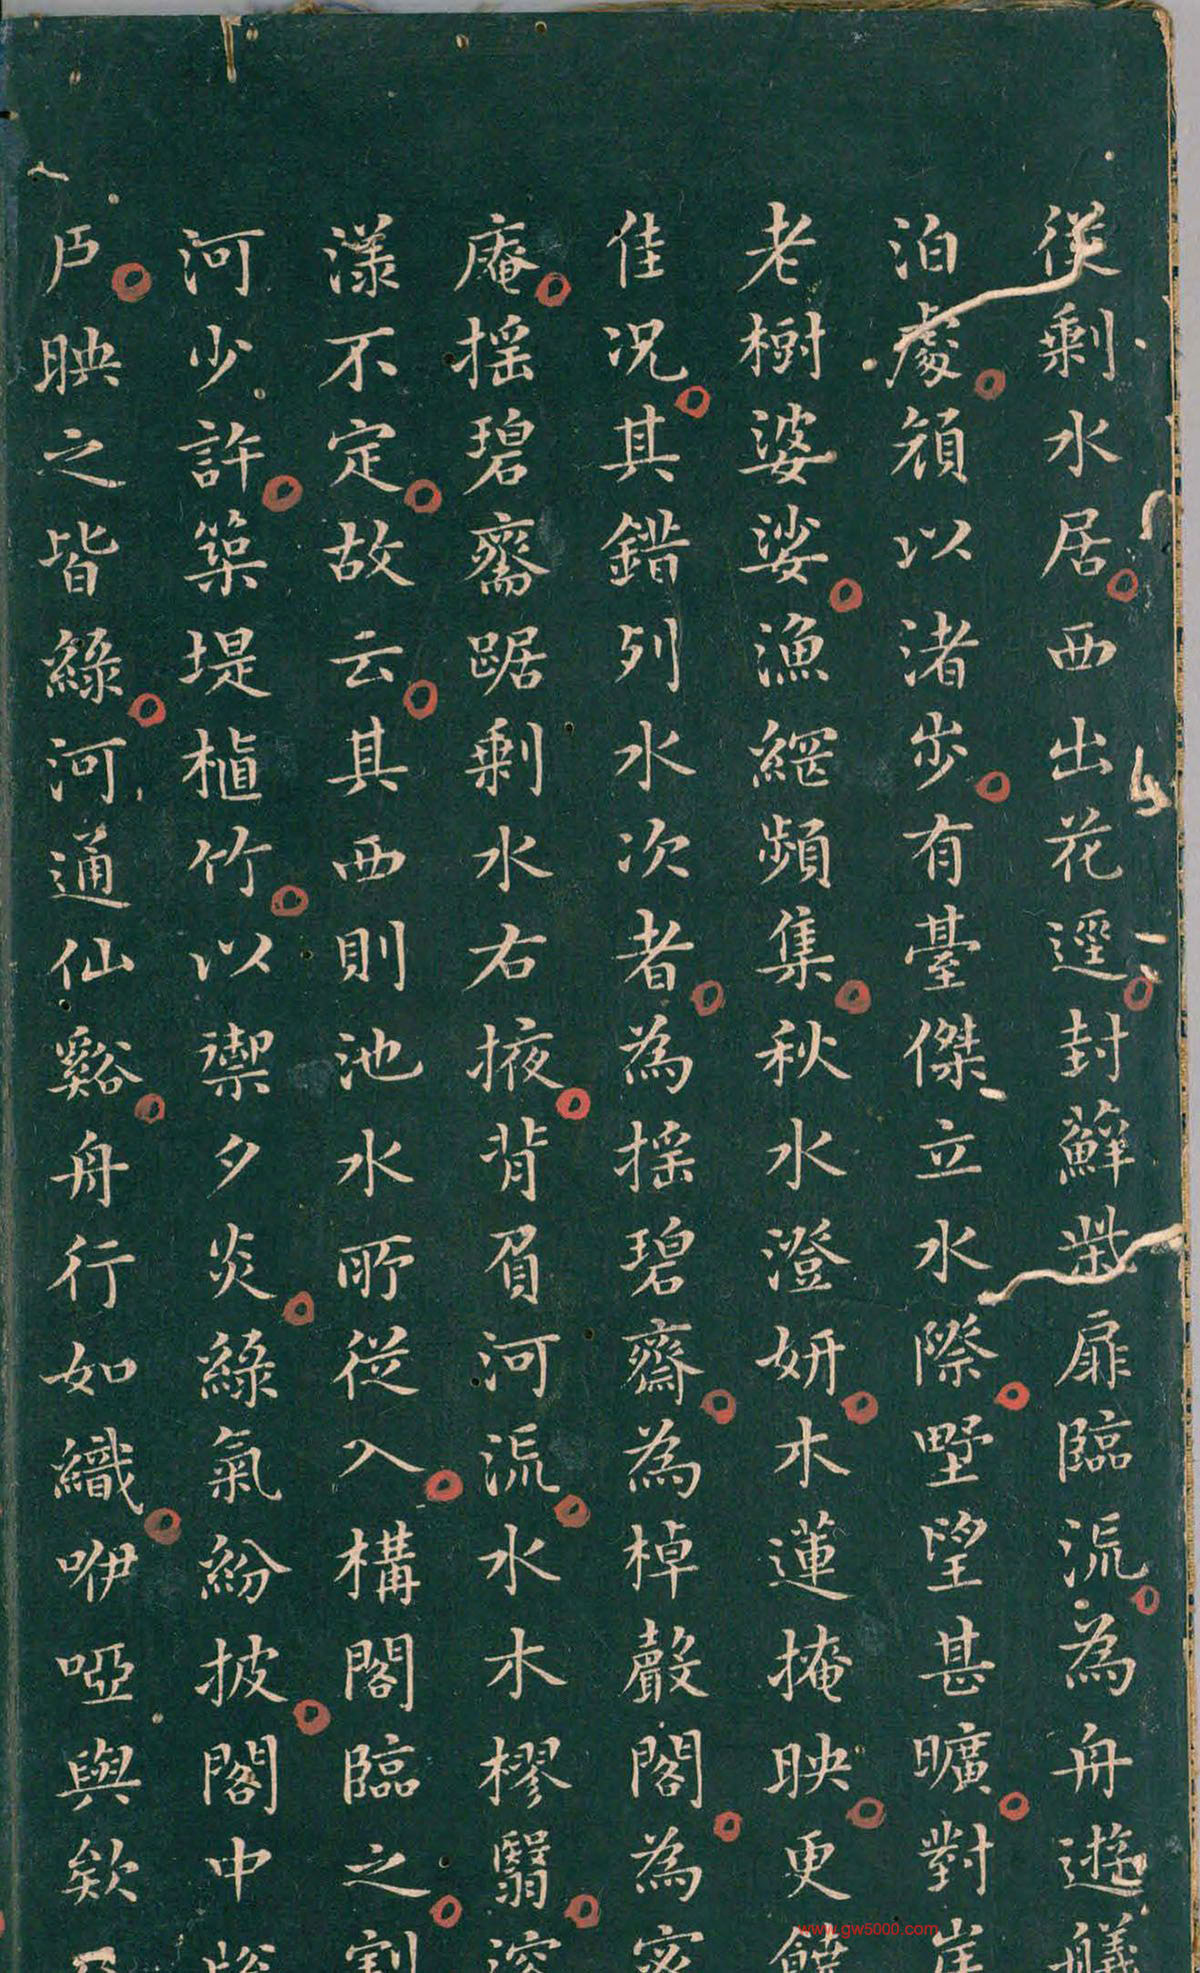 從剩水居西出花逕封蘚桊扉臨流為舟遊艤
泊處頫以渚步有臺傑立水際墅望甚曠對岸
老樹婆娑漁網頻集秋水澄妍木蓮掩映更饒
佳况其錯列水次者為搖碧齋為棹聲閣為密
庵搖碧齋踞剩水右掖背眉河流水木樛翳溶
漾不定故云其西則池水所從入構閣臨之割
河少許築堤植竹以禦夕炎綠氣紛披閣中
戶映之皆綠河通仙谿舟行如織咿啞與欸
www.gw5000.com